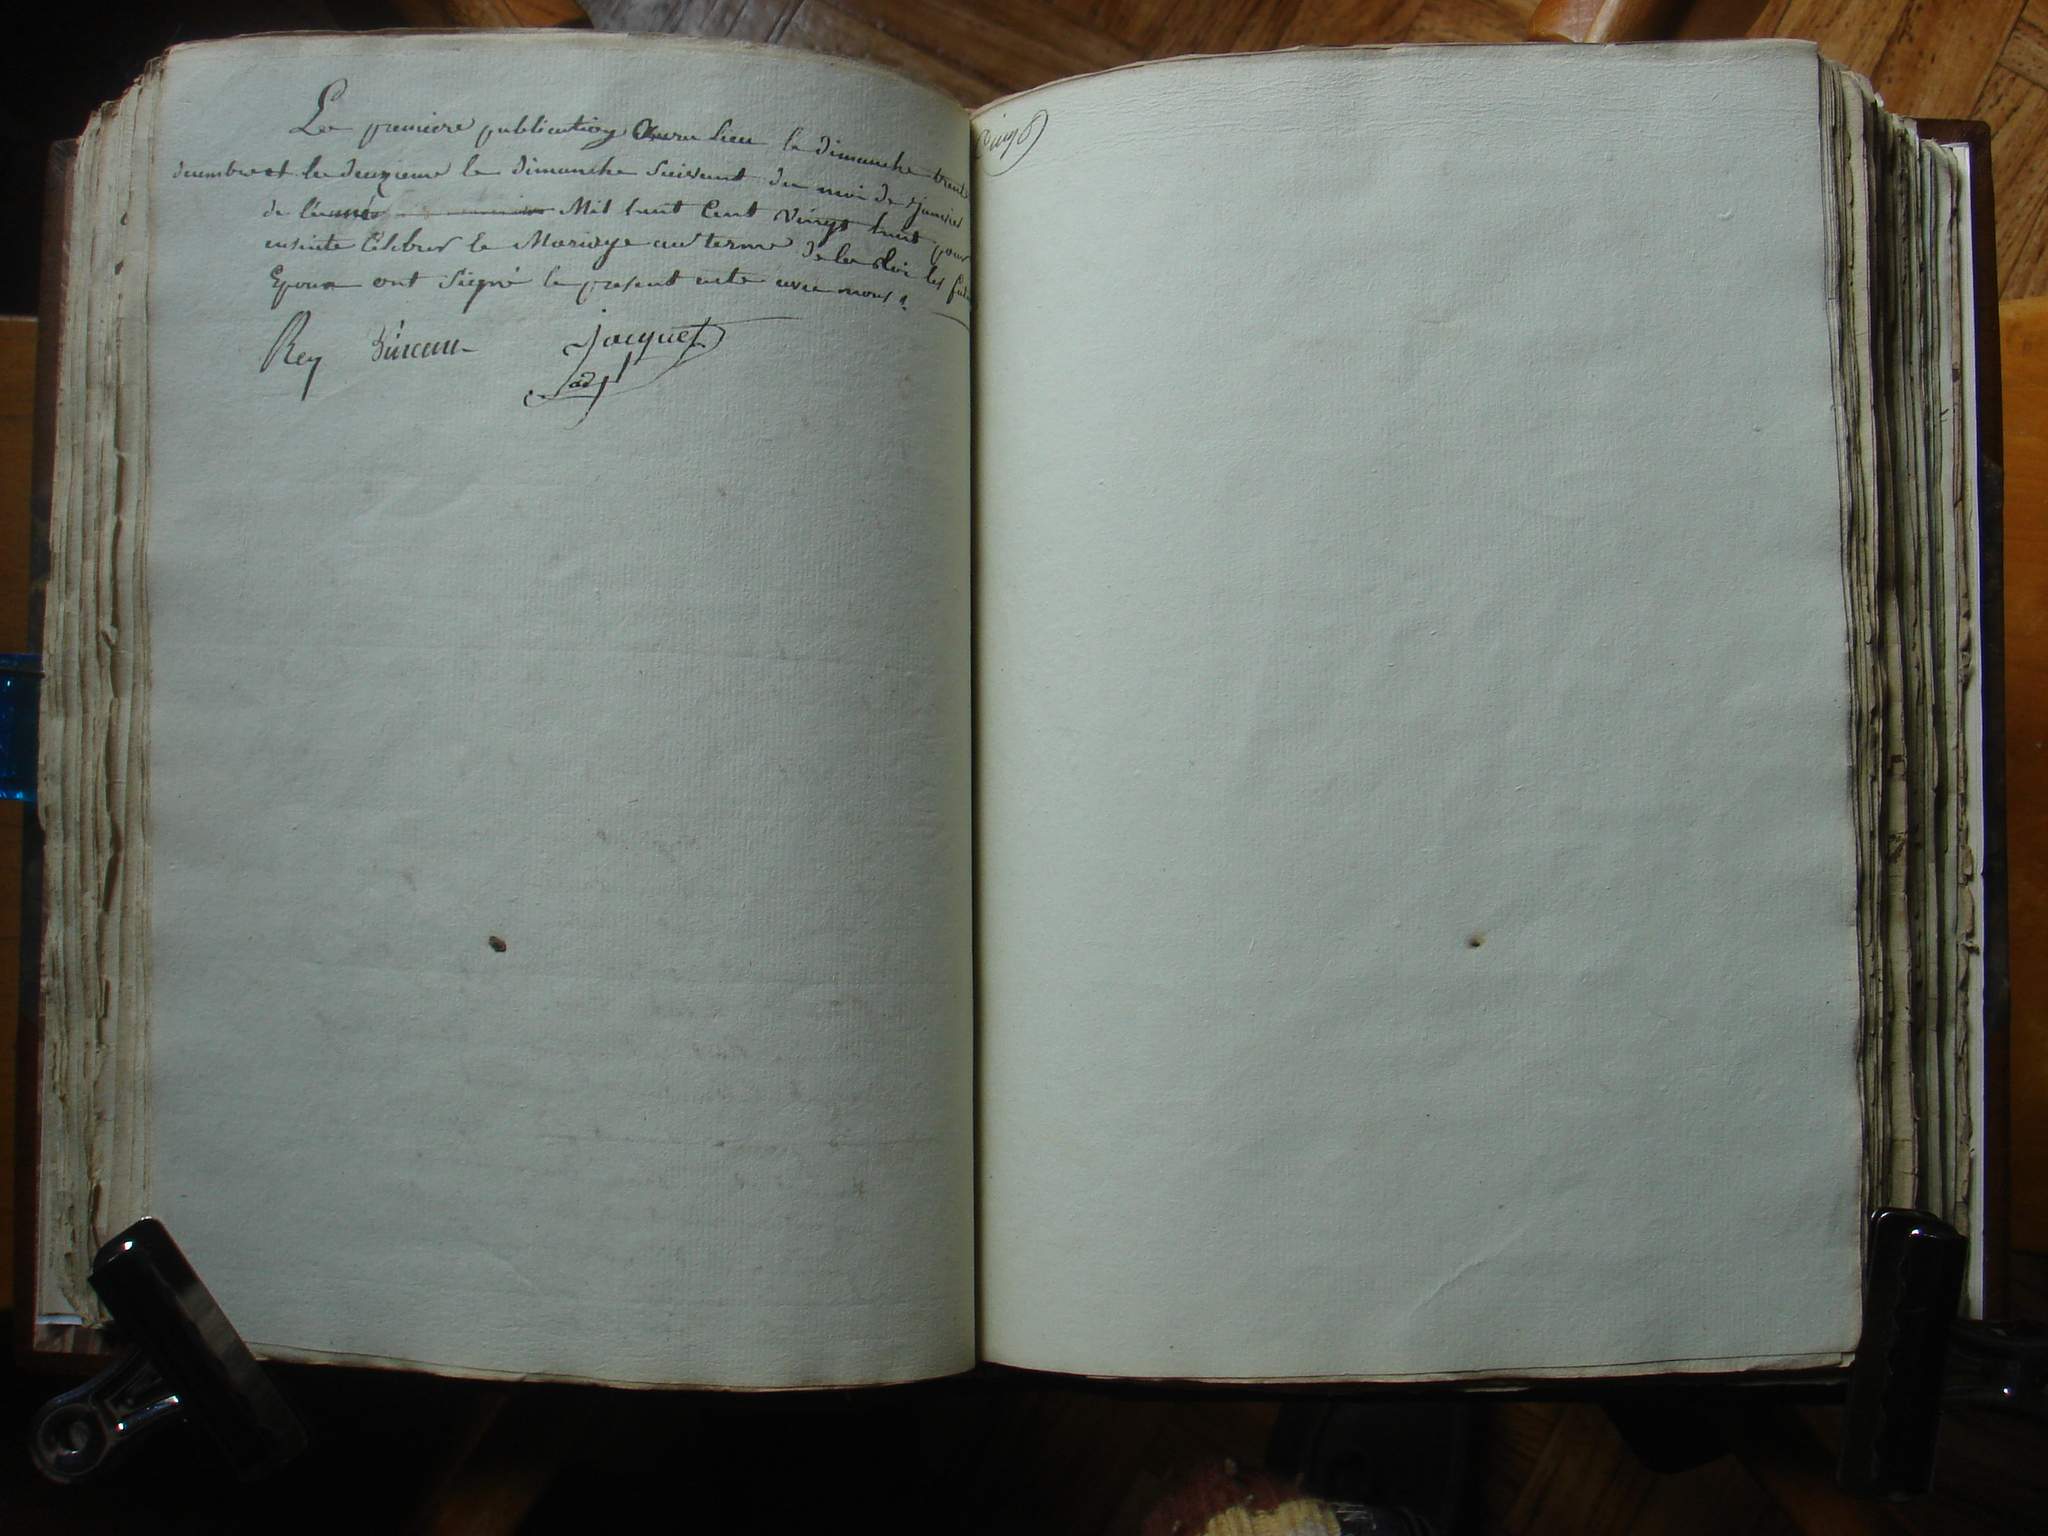 La premiere publication aura lieu le dimanche trente
decembre et la deuzieme le dimanche suivant du moi de janvier
de l'année Mil huit Cent vingt huit pour
ensuite Célébrer le Mariage au terme de la Loi les futu
Epoux ont Signé le present acte avec nous
Rey Jacquet
adjt